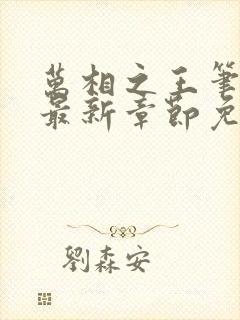 萬相之王筆
最新章節免
劉森安